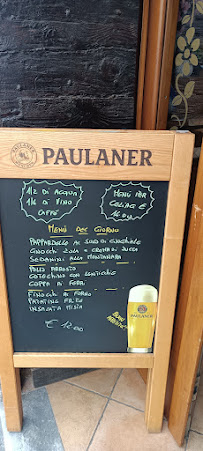 PAULANER
PAULANER
1/2 DI ACQUA
1/4 DI VINO
CAFFÈ
MENÙ PER
CELIACI E
Menù del Giorno
PAPPARDELLE AL SUGO DI CINGHIALE
GNOCCHI ZOLA E CREMA DI ZUCCA
SEDANINI ALLA MONTANARA
POLLO ARROSTO
COTECHINO CON LENTICCHIE
COPPA AI FERRI
FINOCCHI AL FORNO
PATATINE FRITTE
INSALATA MISTA
€ 12,00
PAULANER